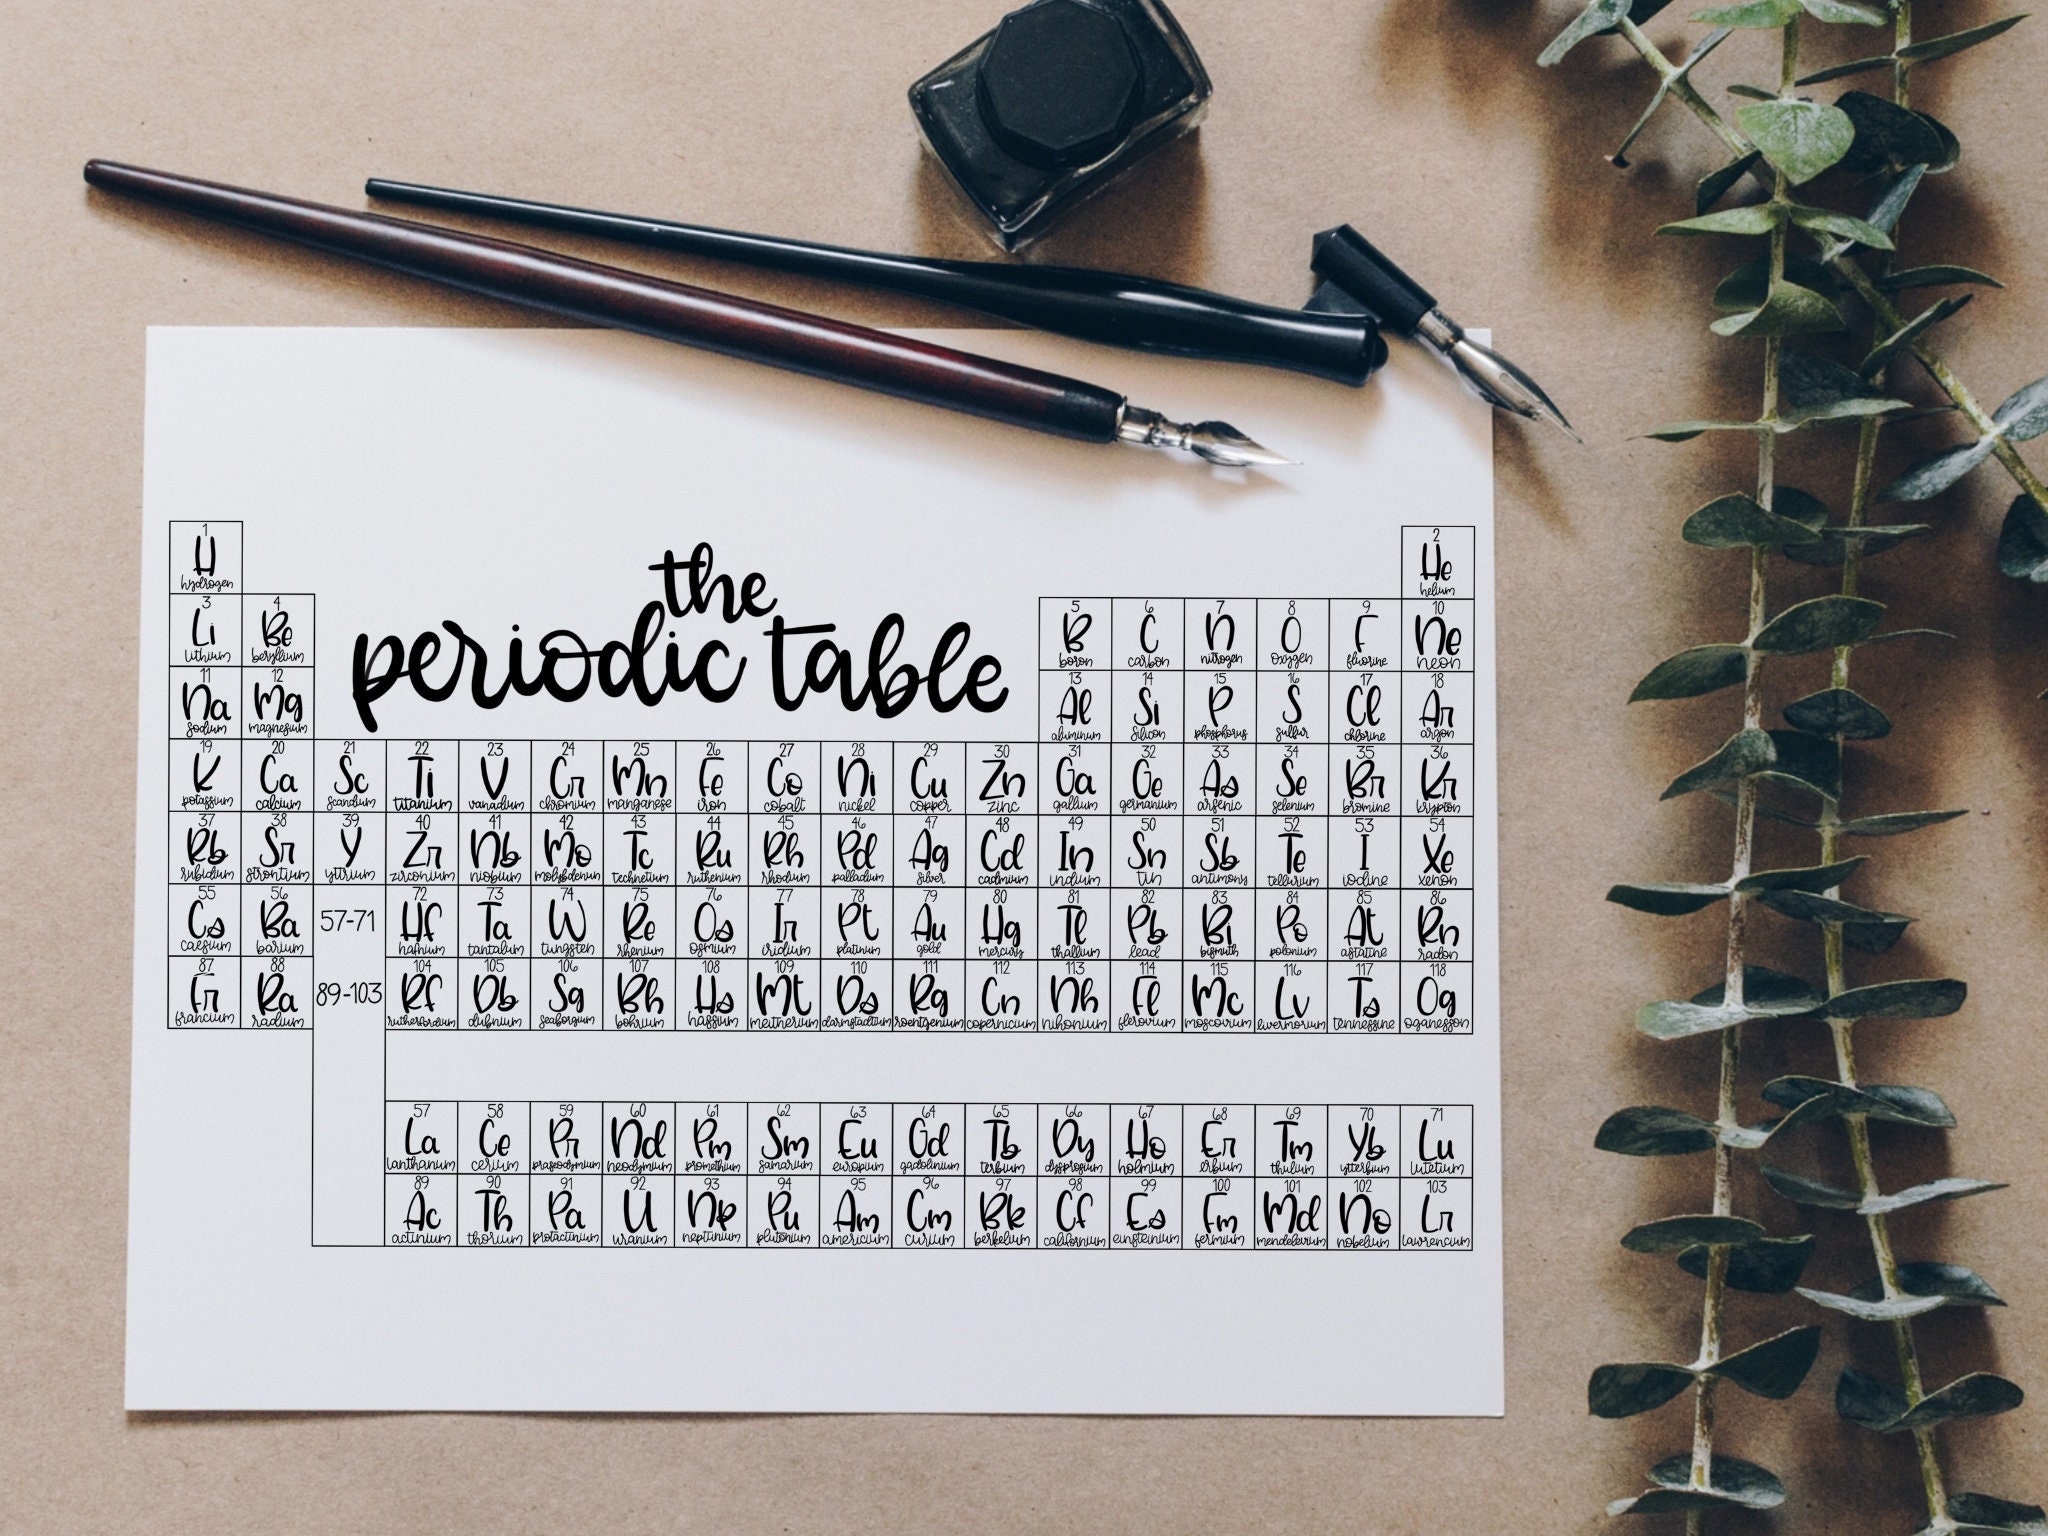 the
periodic table
1 2
H He
hydrogen helium
3 4 5 6 7 8 9 10
Li Be B C N O F Ne
lithium beryllium boron carbon nitrogen oxygen fluorine neon
11 12 13 14 15 16 17 18
Na Mg Al Si P S Cl Ar
sodium magnesium aluminum silicon phosphorus sulfur chlorine argon
19 20 21 22 23 24 25 26 27 28 29 30 31 32 33 34 35 36
K Ca Sc Ti V Cr Mn Fe Co Ni Cu Zn Ga Ge As Se Br Kr
potassium calcium scandium titanium vanadium chromium manganese iron cobalt nickel copper zinc gallium germanium arsenic selenium bromine krypton
37 38 39 40 41 42 43 44 45 46 47 48 49 50 51 52 53 54
Rb Sr Y Zr Nb Mo Tc Ru Rh Pd Ag Cd In Sn Sb Te I Xe
rubidium strontium yttrium zirconium niobium molybdenum technetium ruthenium rhodium palladium silver cadmium indium tin antimony tellurium iodine xenon
55 56 72 73 74 75 76 77 78 79 80 81 82 83 84 85 86
Cs Ba 57-71 Hf Ta W Re Os Ir Pt Au Hg Tl Pb Bi Po At Rn
caesium barium hafnium tantalum tungsten rhenium osmium iridium platinum gold mercury thallium lead bismuth polonium astatine radon
87 88 104 105 106 107 108 109 110 111 112 113 114 115 116 117 118
Fr Ra 89-103 Rf Db Sg Bh Hs Mt Ds Rg Cn Nh Fl Mc Lv Ts Og
francium radium rutherfordium dubnium seaborgium bohrium hassium meitnerium darmstadtium roentgenium copernicium nihonium flerovium moscovium livermorium tennessine oganesson
57 58 59 60 61 62 63 64 65 66 67 68 69 70 71
La Ce Pr Nd Pm Sm Eu Gd Tb Dy Ho Er Tm Yb Lu
lanthanum cerium praseodymium neodymium promethium samarium europium gadolinium terbium dysprosium holmium erbium thulium ytterbium lutetium
89 90 91 92 93 94 95 96 97 98 99 100 101 102 103
Ac Th Pa U Np Pu Am Cm Bk Cf Es Fm Md No Lr
actinium thorium protactinium uranium neptunium plutonium americium curium berkelium californium einsteinium fermium mendelevium nobelium lawrencium